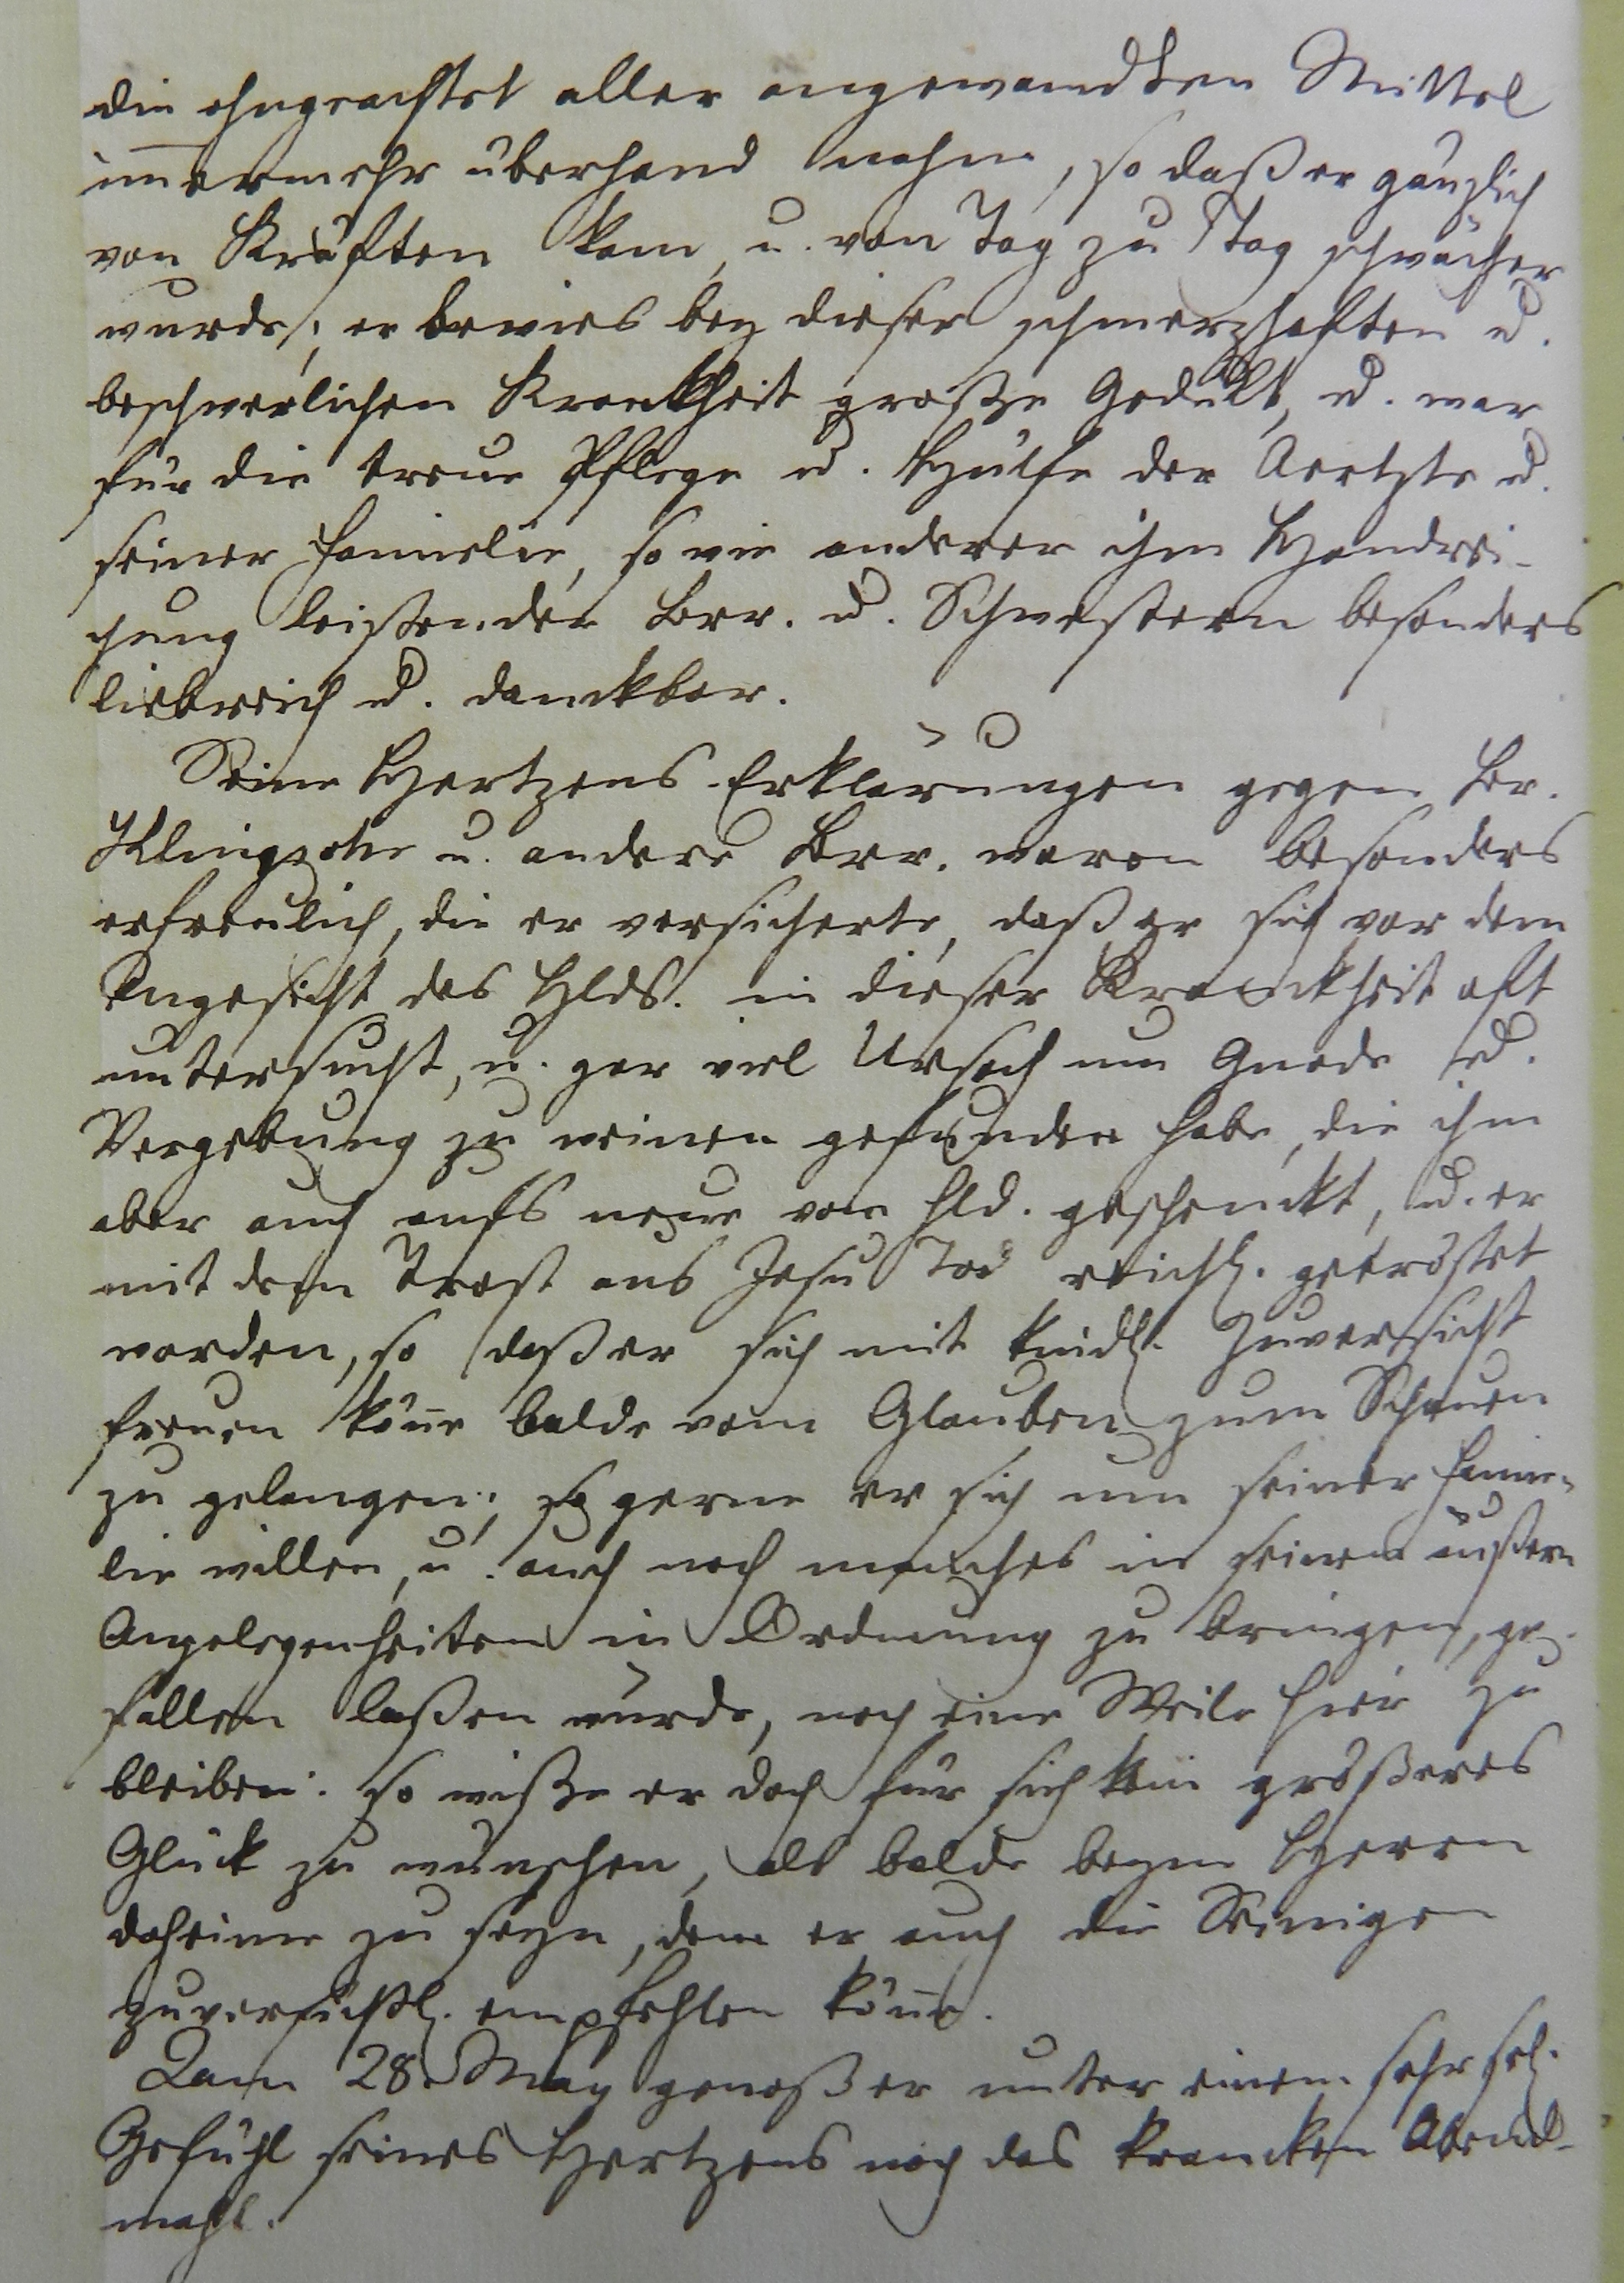 die ohngeachtet aller angewandten Mittel
im̅ermehr überhand nahm, so daß er gänzlich
von Kräften kam, u. von Tag zu Tag schwächer
wurde; er bewies bey dieser schmerzhaften u.
beschwerlichen Kranckheit große Gedult, u. war
für die treue Pflege u. Hülfe der Aertzte u.
seiner Famielie, so wie anderer ihm Handrei-
chung leistenden Brr. u. Schwestern besonders
liebreich u. danckbar.
Seine Hertzens-Erklärungen gegen Br.
Klingsohr u. andere Brr. waren besonders
erfreulich, die er versicherte, daß er sich vor dem
Angesicht des Hlds. in dieser Kranckheit oft
untersucht, u. gar viel Ursach um Gnade u.
Vergebung zu weinen gefunden habe, die ihm
aber auch aufs neue vom Hld. geschenckt, u. er
mit dem Trost aus Jesu Tod reichl. getröstet
worden, so daß er sich mit kindl. Zuversicht
freuen kön̅e balde vom Glauben zum Schauen
zu gelangen; so gerne er sich um seiner Famie-
lie willen, u. auch noch manches in seinen äußern
Angelegenheiten in Ordnung zu bringen, ge-
fallen laßen würde, noch eine Weile hier zu
bleiben: so wiße er doch für sich kein größeres
Glück zu wünschen, als balde beym Herrn
daheime zu seyn, dem er auch die Seinigen
zuversichtl. empfehlen kön̅e.
Dann 28. May genoß er unter einem sehr sel.
Gefühl seines Hertzens noch das krancken Abend-
mahl.